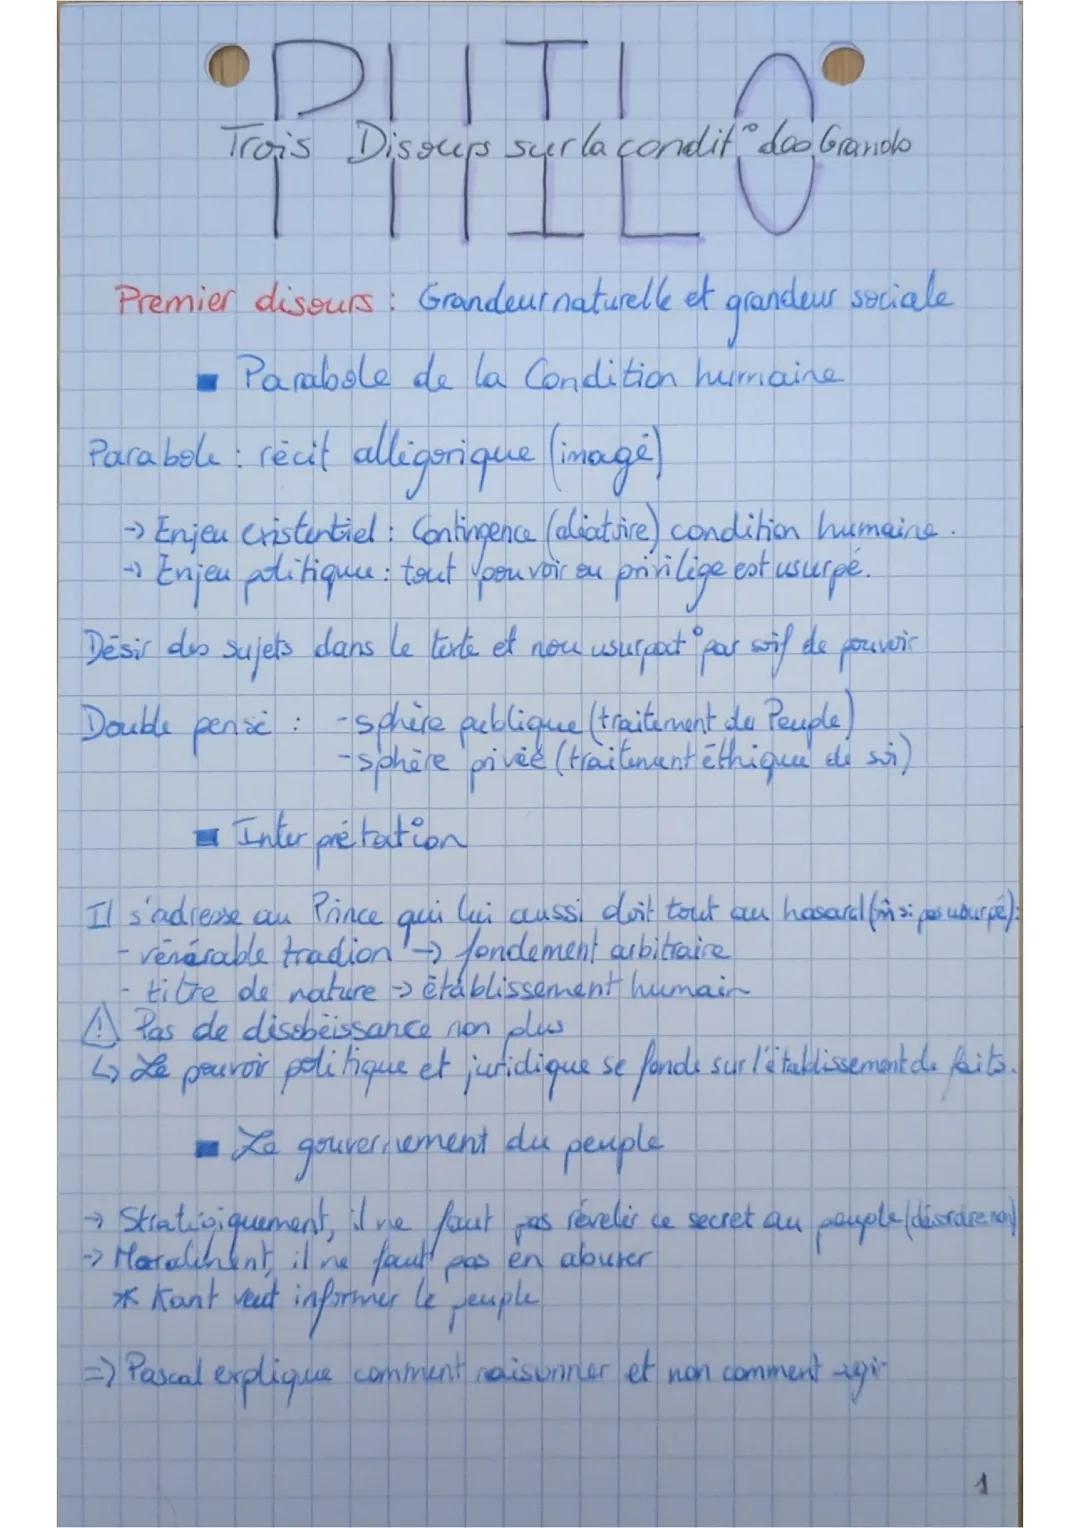 PHILO
Trois Disours sur la condit° des Grands
Premier disours : Grandeur naturelle et grandeur sociale
Parabole de la Condition humaine
Parabole : récit alligorique (imagé)
-> Enjeu existentiel : Contingence (aléatoire) condition humaine.
-> Enjeu politique : tout pouvoir ou privilège est usurpé.
Désir des sujets dans le texte et non usurpat° par soif de pouvoir
Double pensé : - sphère publique (traitement du Peuple)
- sphère privée (traitement éthique de soi)
Interprétation
Il s'adresse au Prince qui lui aussi doit tout au hasard (m̂ si pas usurpé):
- vénérable tradion -> fondement arbitraire
- titre de nature -> établissement humain
⚠ Pas de disobéissance non plus
↳ Le pouvoir politique et juridique se fonde sur l'établissement de faits.
Le gouvernement du peuple
-> Stratégiquement, il ne faut pas réveler ce secret au peuple (désordre non)
-> Moralement, il ne faut pas en abuser
* Kant veut informer le peuple
=> Pascal explique comment raisonner et non comment agir
1